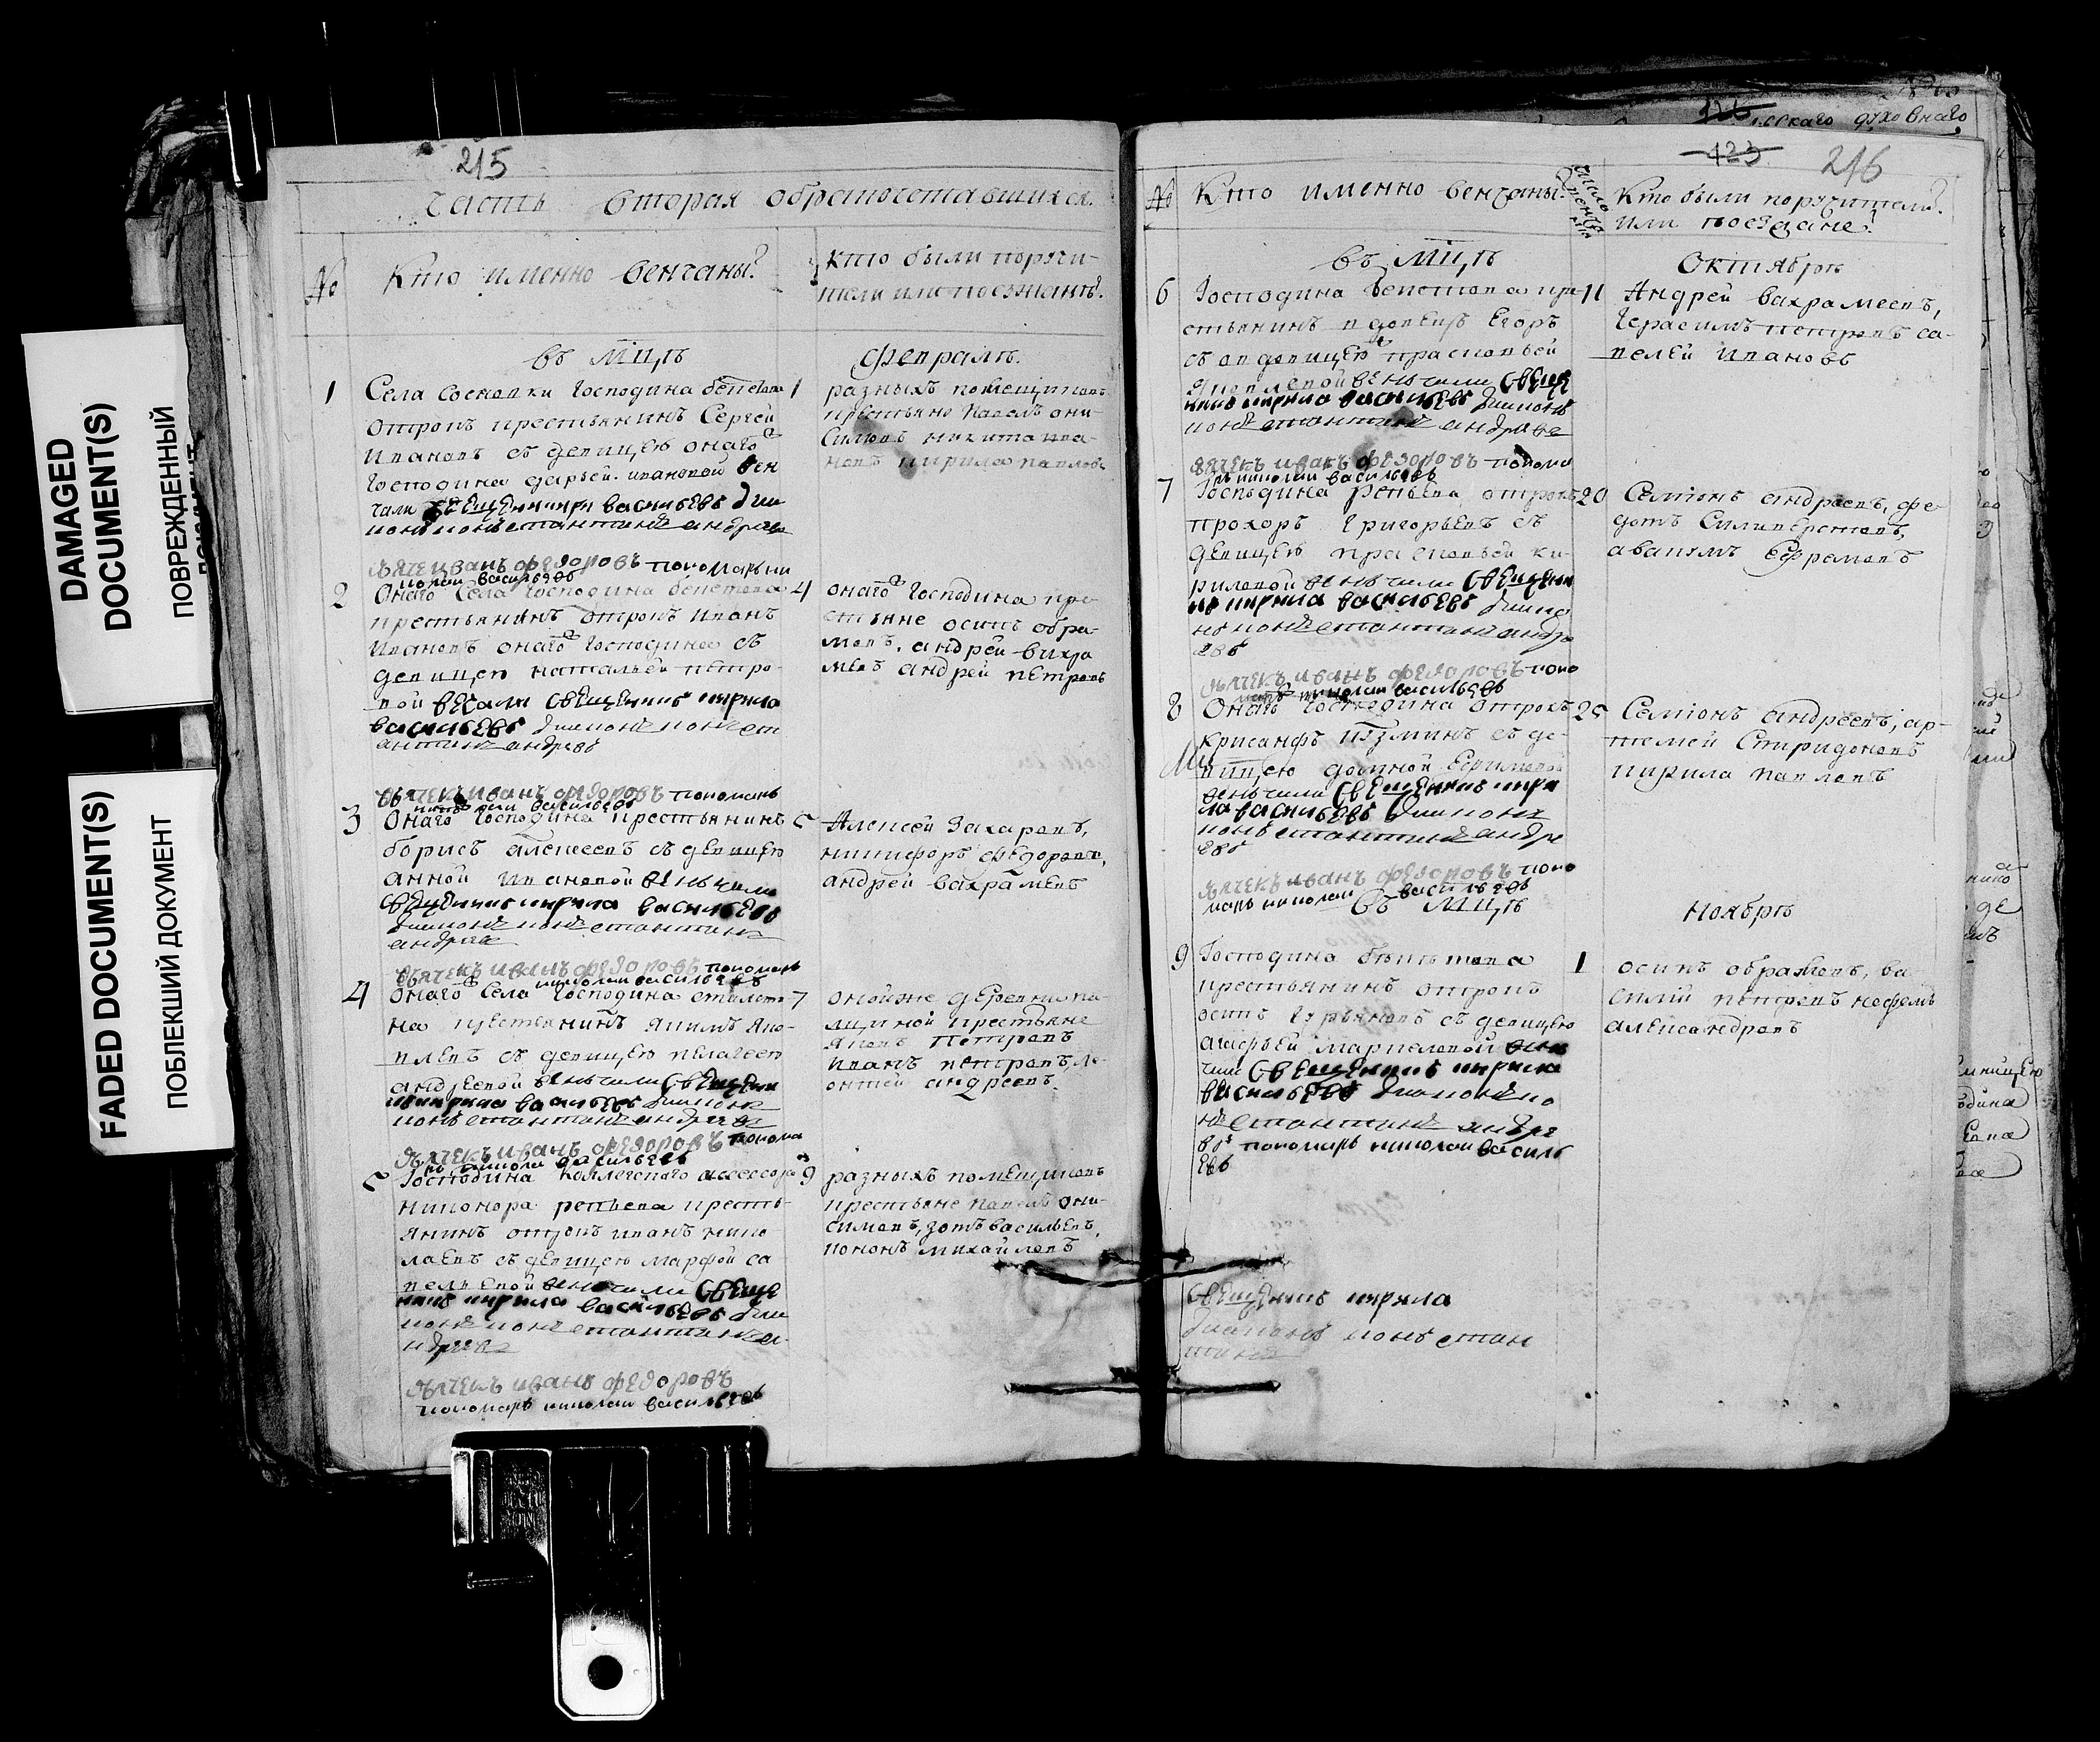 DAMAGED
DOCUMENT(S)
ПОВРЕЖДЕННЫЙ
FADED DOCUMENT(S)
ПОБЛЕКШИЙ ДОКУМЕНТ
215
Часть вторая обраточетавшихся.
№
Кто именно венчаны?
Кто были поручи-
тели или поезжанѣ?
въ мцѣ
февралѣ.
1
Села Сосновки Господина
отрокъ крестьянинъ Сергей
Ивановъ съ девицею онаго
Господина дарьей ивановой вен
чали священникъ васильевъ дия
конъ констан­тинъ андреевъ
дьячекъ иванъ федоровъ пономарь ни
колаи васильевъ
1
разныхъ помещиковъ
крестьяне павелъ они-
симовъ никита ива-
новъ кирила павловъ
2
Онаго Села Господина
крестьянинъ отрокъ иванъ
ивановъ онаго Господина съ
девицею натальей петро-
вой священникъ кирила
васильевъ диаконъ конст
антинъ андреевъ
дьячекъ иванъ федоровъ пономарь
васильевъ
4
онаго Господина кре-
стьяне осипъ обра-
мовъ, андрей вахра
меевъ андрей петровъ
3
Онаго Господина крестьянинъ
борисъ алексеевъ съ девицею
анной ивановой венчали
священникъ кирила васильевъ
диаконъ константинъ
андреевъ
дьячекъ иванъ федоровъ пономарь
николаи васильевъ
5
Алексей Захаровъ,
никифоръ федоровъ,
андрей вахрамеевъ
4
Онаго Села Господина
крестьянинъ якимъ яко-
влевъ съ девицею пелагеею
андреевой венчили священ
никъ кирила васильевъ диаконъ
константинъ андреевъ
дьячекъ иванъ федоровъ понома
рь никола васильевъ
7
онойже деревни
крестьяне
яковъ петровъ
иванъ петровъ, ле-
онтей андреевъ.
5
Господина Коллегскаго ассесора
никонора репьева кресть-
янинъ отрокъ иванъ нико-
лаевъ съ девицею марфой са-
вельевой венчили свяще
никъ кирила васильевъ диа
конъ константинъ а-
ндреевъ
дьячекъ иванъ федоровъ
пономарь николаи васильевъ
9
разныхъ помещиковъ
крестьяне павелъ они-
симовъ, зотъ васильевъ,
кононъ михайловъ
423
216
№
Кто именно венчаны?
Кто были поручители?
или поездане?
въ мцѣ
Октябрѣ
6
Господина кре-
стьянинъ вдовецъ Егоръ
съ вдовицею прасковьей
венчили свяще
никъ кирила васильевъ диаконъ
константинъ андреев
дьячекъ иванъ федоровъ понома
рь николаи васильевъ
11
Андрей вахрамеевъ,
Герасимъ петровъ са-
велей ивановъ
7
Господина репьева отрокъ
прохоръ григорьевъ съ
девицею прасковьей ки-
риловой венчили священ
никъ кирила васильевъ диако
нъ константинъ андре
евъ
дьячекъ иванъ федоровъ поно
марь николаи васильевъ
20
Семионъ андреевъ, фе-
дотъ Силиверстовъ,
авакумъ Ефремовъ
8
Онаго Господина отрокъ
крисанфъ кузминъ съ де-
вицею домной Ефимовой
венчили священникъ кири
ла васильевъ диаконъ
константинъ андре
евъ
дьячекъ иванъ федоровъ поно
марь николаи васильевъ
25
Семионъ андреевъ, ар-
темей Спиридоновъ
кирила павловъ
въ мцѣ
Ноябрѣ
9
Господина
крестьянинъ отрокъ
осипъ гурьяновъ съ девицею
маркеловой вен
чили священникъ кирила
васильевъ диаконъ ко
нстантинъ андре
евъ пономарь николаи василь
евъ
1
осипъ обрамовъ, ва-
силий петровъ нефедъ
александровъ
Священникъ кирила
диаконъ констан
тинъ